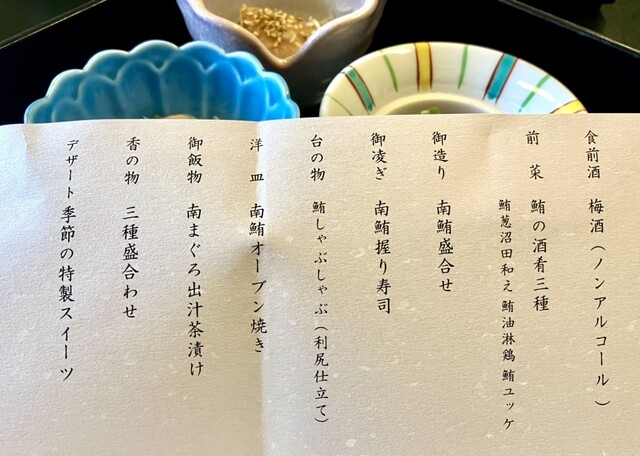 食前酒 梅酒(ノンアルコール)
前菜 鮪の酒肴三種
鮪葱沼田和え 鮪油淋鶏 鮪ユッケ
御造り 南鮪盛合せ
御凌ぎ 南鮪握り寿司
台の物 鮪しゃぶしゃぶ(利尻仕立て)
洋皿 南鮪オーブン焼き
御飯物 南まぐろ出汁茶漬け
香の物 三種盛合わせ
デザート 季節の特製スイーツ